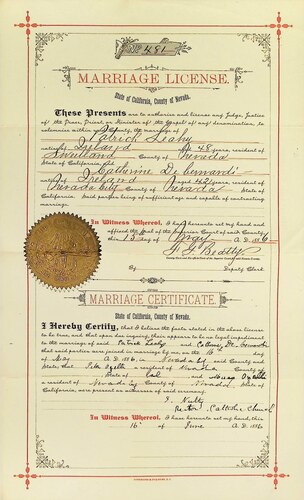 No 481
MARRIAGE LICENSE.
State of California, County of Nevada.
These Presents are to authorize and license any Judge, Justice
of the Peace, Priest or Minister of the Gospel of any denomination, to
solemnize within said County, the marriage of
Patrick Leahy
native of Ireland aged 48 years, resident of
County of Nevada
State of California, and
Catherine De Bernardi
native of Ireland aged 42 years, resident of
Nevada City County of Nevada
State of California. Said parties being of sufficient age and capable of contracting
marriage.
In Witness Whereof, I have hereunto set my hand and
affixed the Seal of the Superior Court of said County,
this 13 day of May A. D. 1886
F. G. Beatty
Deputy Clerk
MARRIAGE CERTIFICATE.
State of California, County of Nevada.
I Hereby Certify, that I believe the facts stated in the above license
to be true, and that upon due inquiry, there appears to be no legal impediment
to the marriage of said Patrick Leahy and
that said parties were joined in marriage by me, on the day
of May A. D. 1886, in Nevada City said County and
State; that a resident of Nevada County
State of Cal and
a resident of Nevada City County of Nevada State of
California, were present as witnesses of said ceremony.
Catholic Church
In Witness Whereof, I have hereunto set my hand, this
16 June A. D. 1886